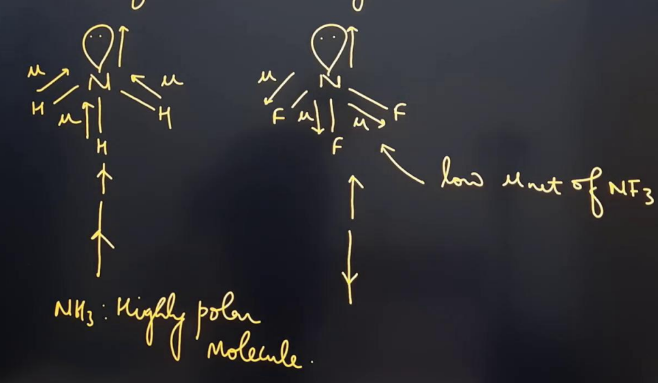 μ N μ
H μ H
H
μ N
F μ μ F
F
low μnet of NF3
NH3: Highly polar
Molecule.